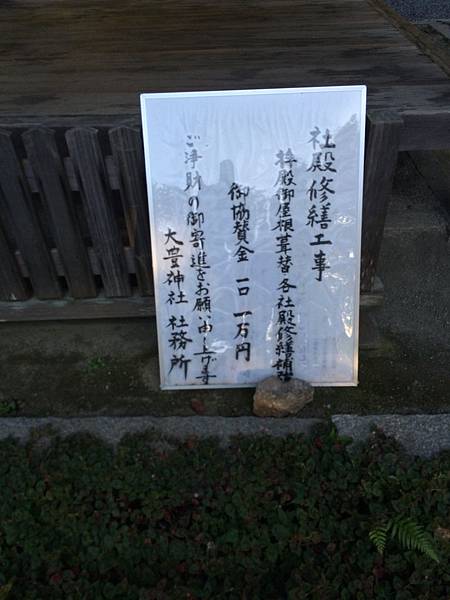 社殿修繕工事
拝殿御屋根葺替・各社殿修繕補強
御協賛金 一口 一万円
ご浄財の御寄進をお願い申し上げます
大豊神社 社務所